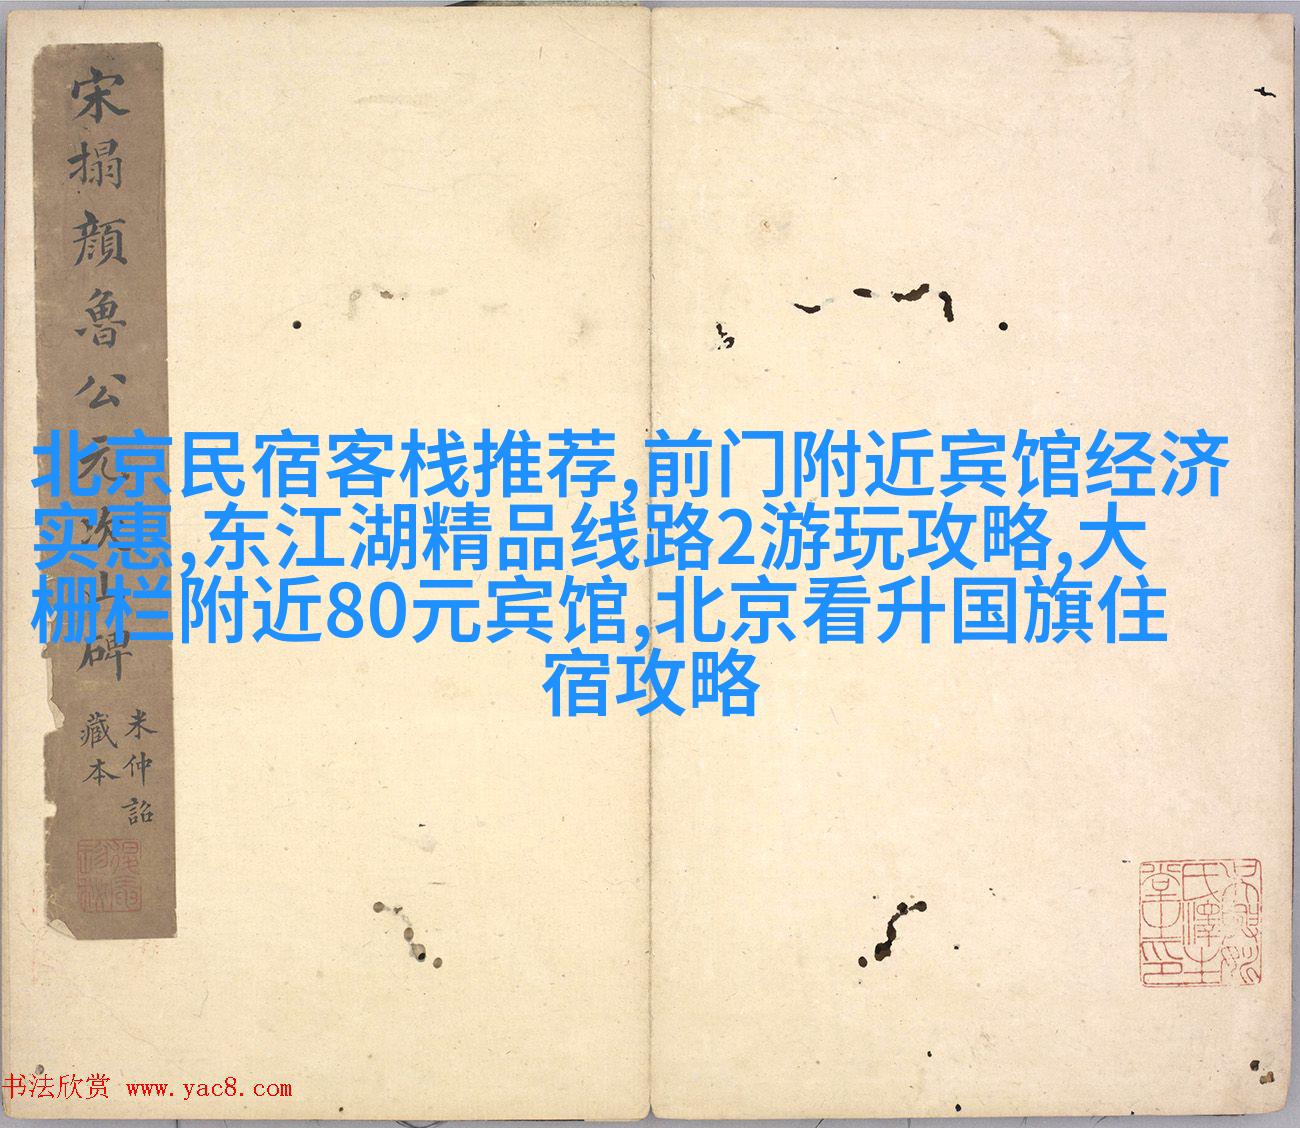 宋搨顔魯公元次山碑
米仲詔
藏本
北京民宿客栈推荐,前门附近宾馆经济
实惠,东江湖精品线路2游玩攻略,大
栅栏附近80元宾馆,北京看升国旗住
宿攻略
书法欣赏 www.yac8.com